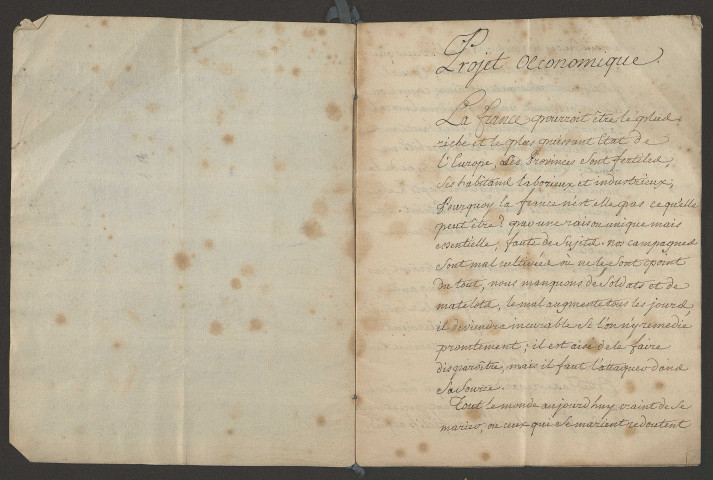 Projet Œconomique.
La france pourroit être le plus
riche et le plus puissant Etat de
l'Europe, Ses Provinces Sont fertiles,
Ses habitans laborieux et industrieux;
Pourquoy la france n'est elle pas ce qu'elle
peut être? par une raison unique mais
essentielle, faute de Sujets. nos campagnes
Sont mal cultivées où ne le Sont point
du tout, nous manquons de Soldats et de
matelots, le mal augmente tous les jours,
il deviendra incurable Si l'on n'y remedie
promtement; il est aisé de le faire
disparoître, mais il faut l'attaquer dans
Sa Source.
Tout le monde aujourd'huy craint de Se
marier, ou ceux qui Se marient redoutent